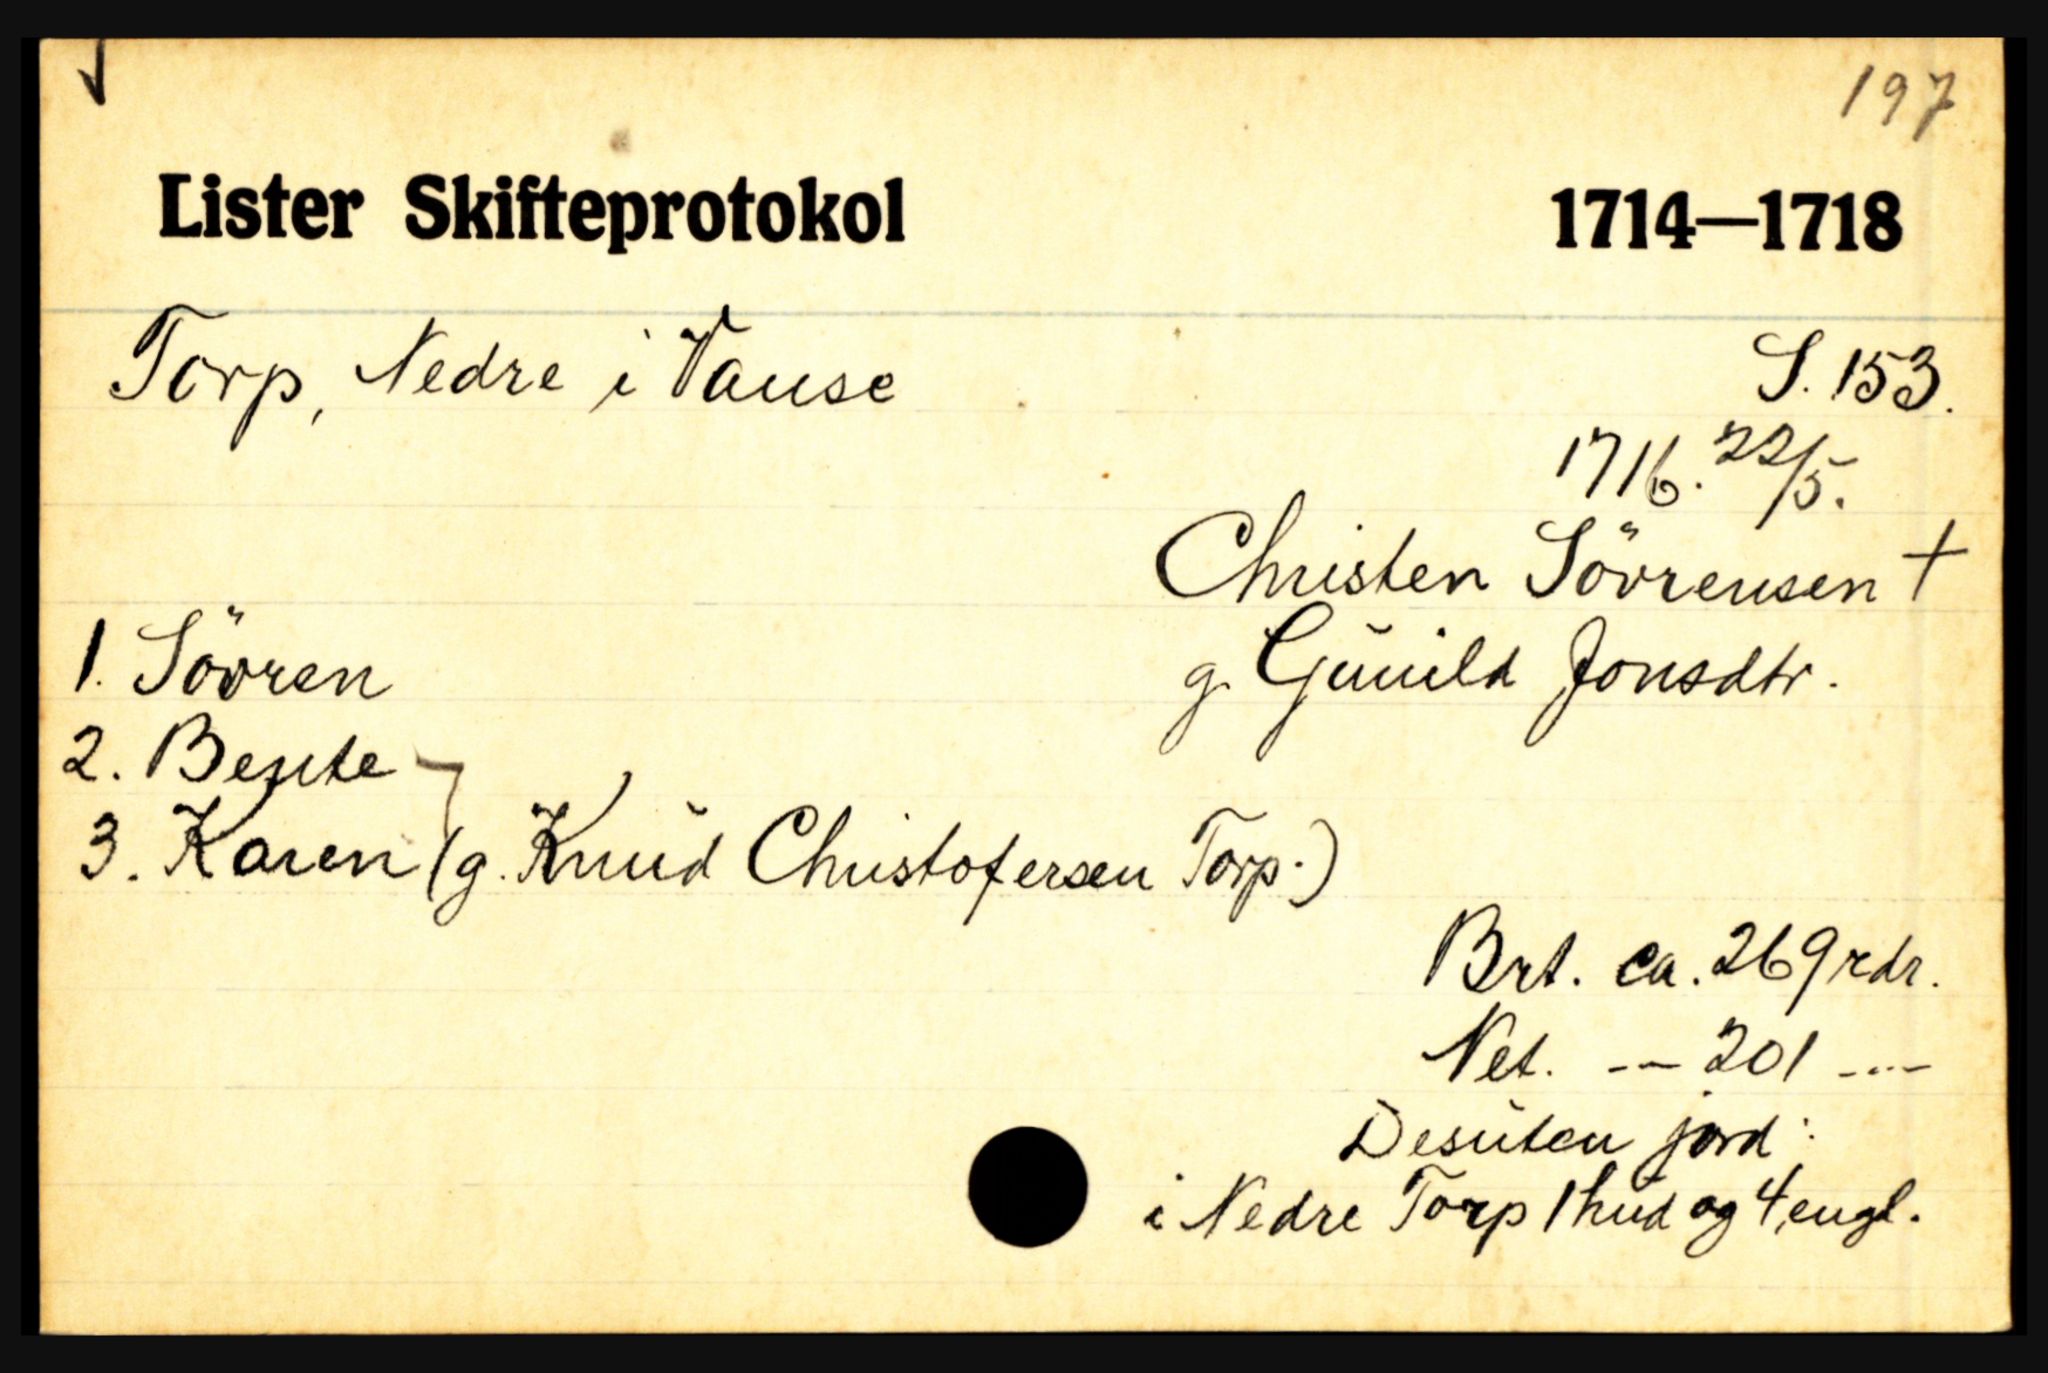 197
Lister Skifteprotokol 1714—1718
Torp, Nedre i Vanse S. 153.
1716. 22/5.
Christen Sövrensen +
1. Sövren g. Gŭnild Jonsdtr.
2. Bente
3. Karen (g. Knŭd Christofersen Torp.)
Brt. ca. 269 rdr.
Net. -- 201 ----
Desŭten jord:
i Nedre Torp 1 hŭd og 4 engl.